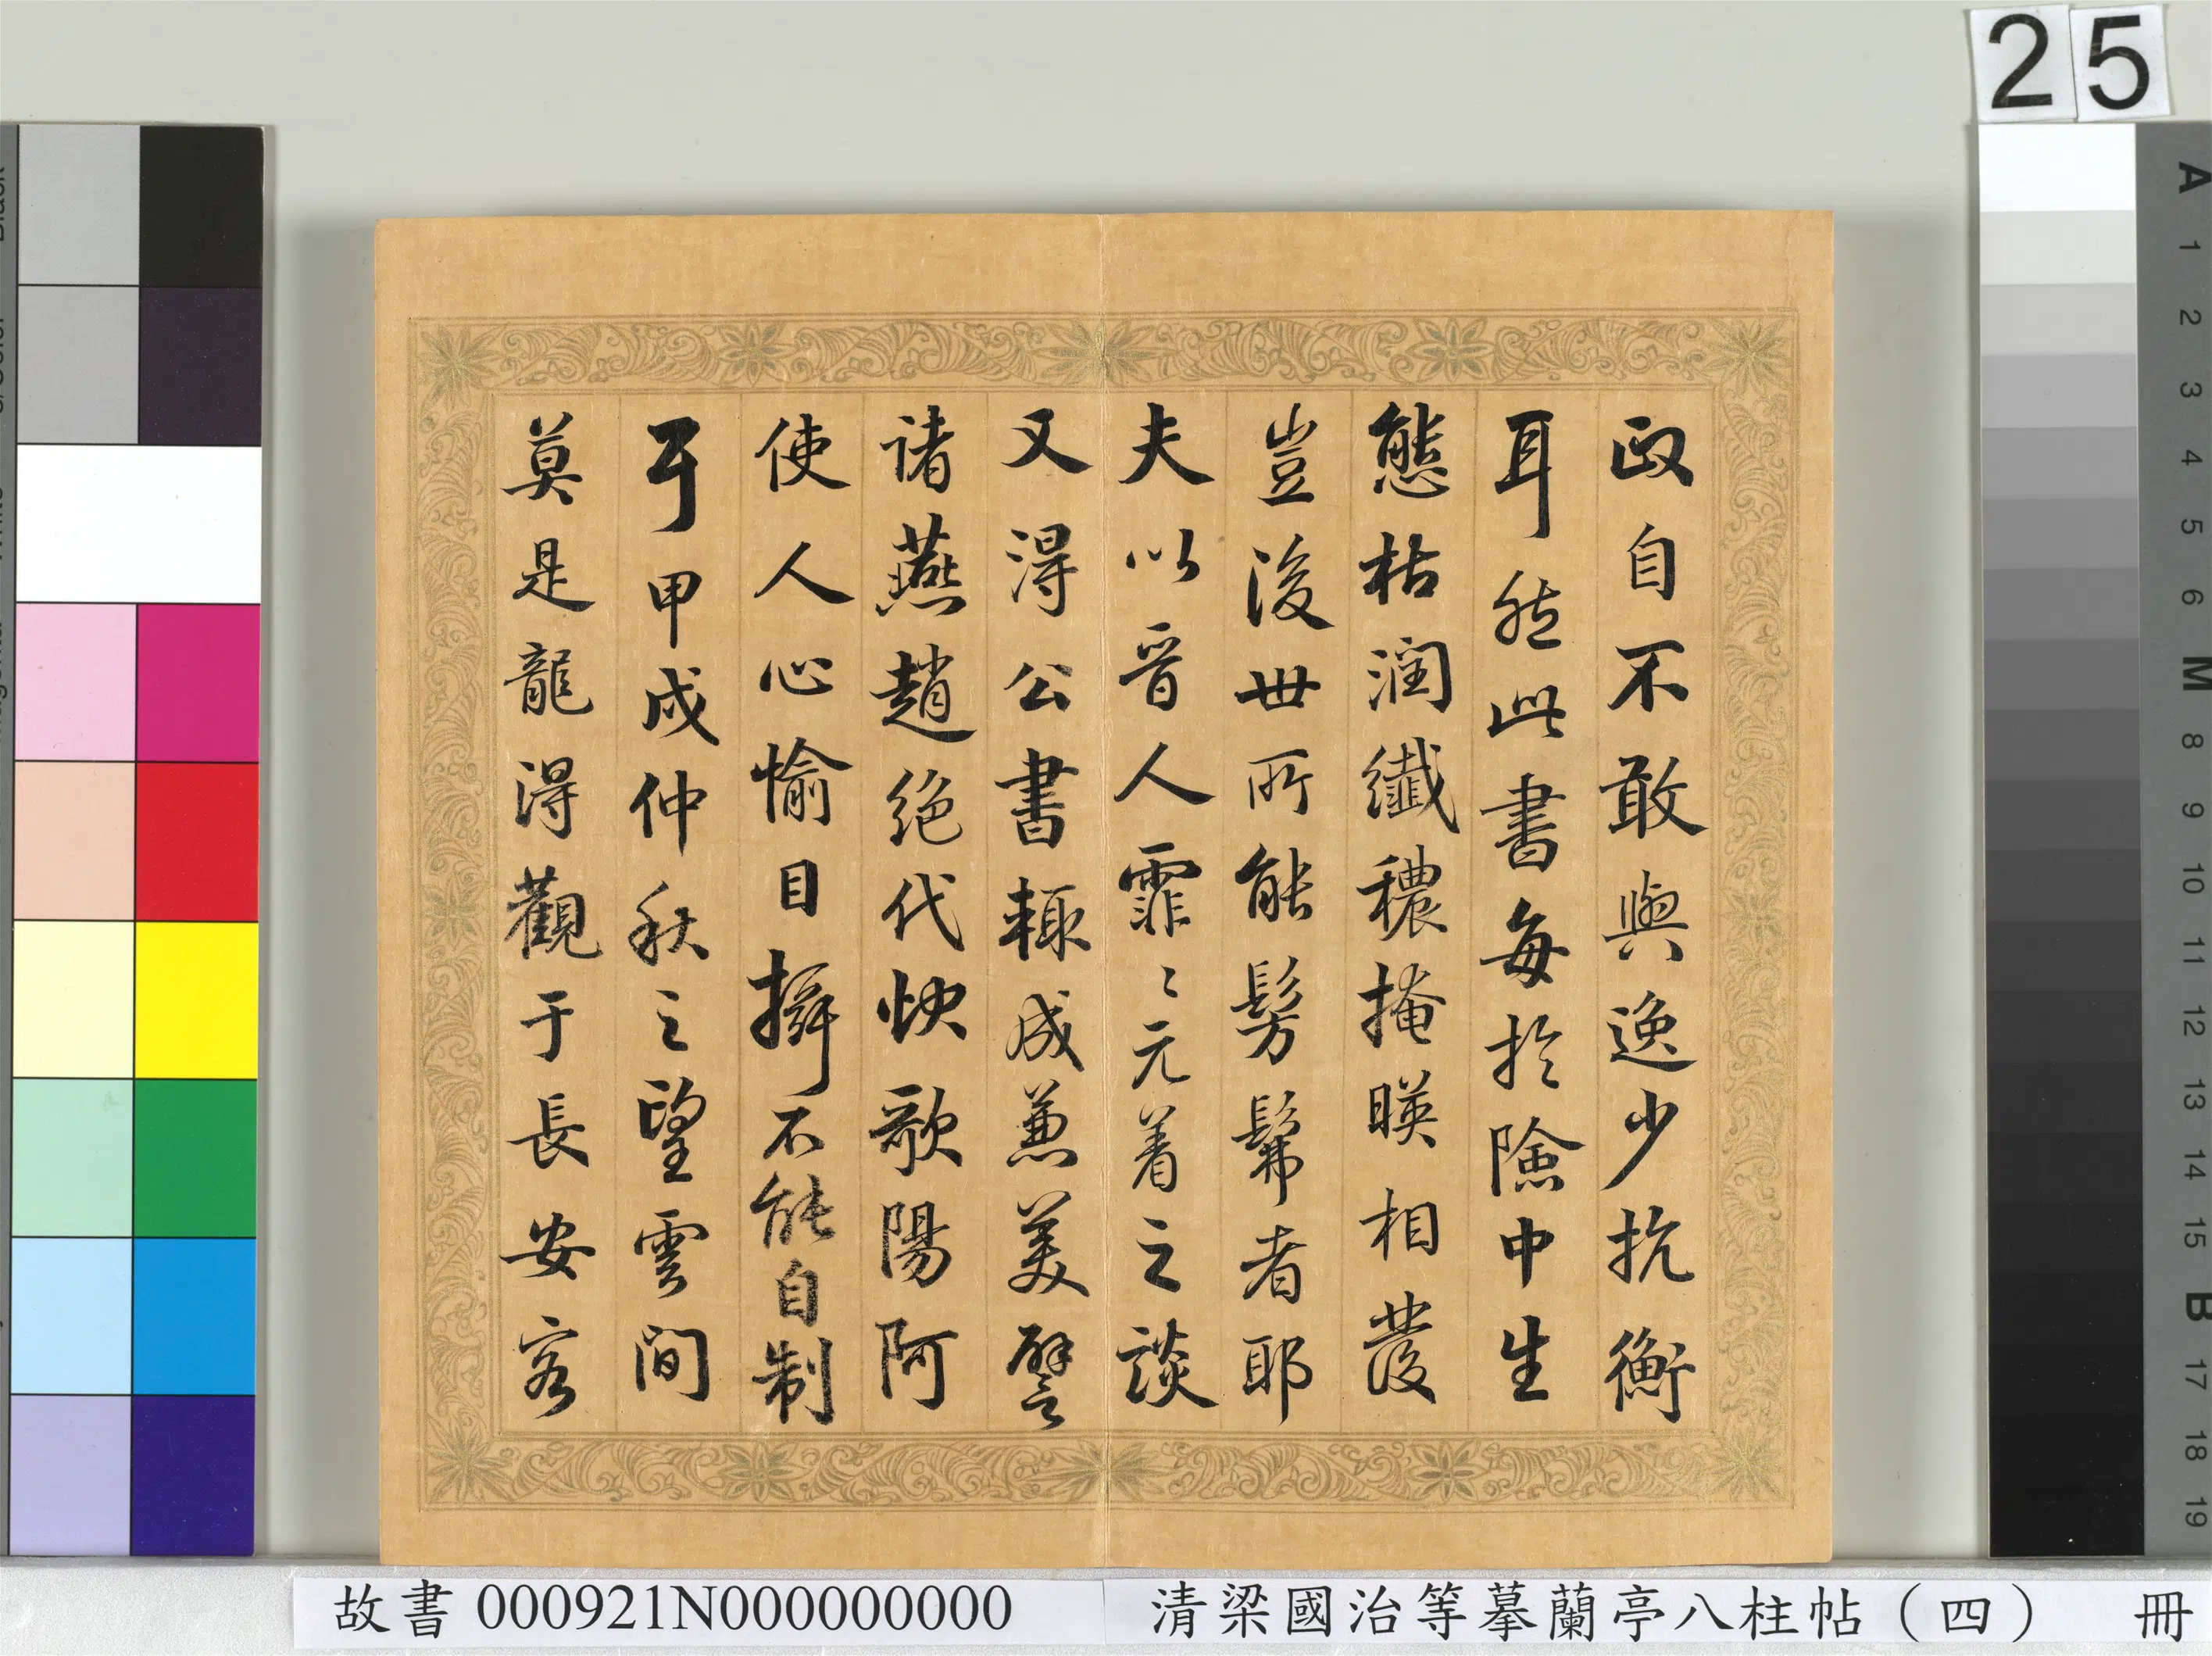 25
政自不敢與逸少抗衡
耳然此書每於險中生
態枯潤纖穠掩暎相發
豈後世所能髣髴者耶
夫以晉人霏〻元著之談
又得公書輒成兼美譬
諸燕趙絕代快歌陽阿
使人心愉目攝不能自制
耳甲戌仲秋之望雲間
莫是龍得觀于長安客
A 1 2 3 4 5 6 M 8 9 10 11 12 13 14 15 B 17 18 19
故書 000921N000000000
清梁國治等摹蘭亭八柱帖（四） 冊